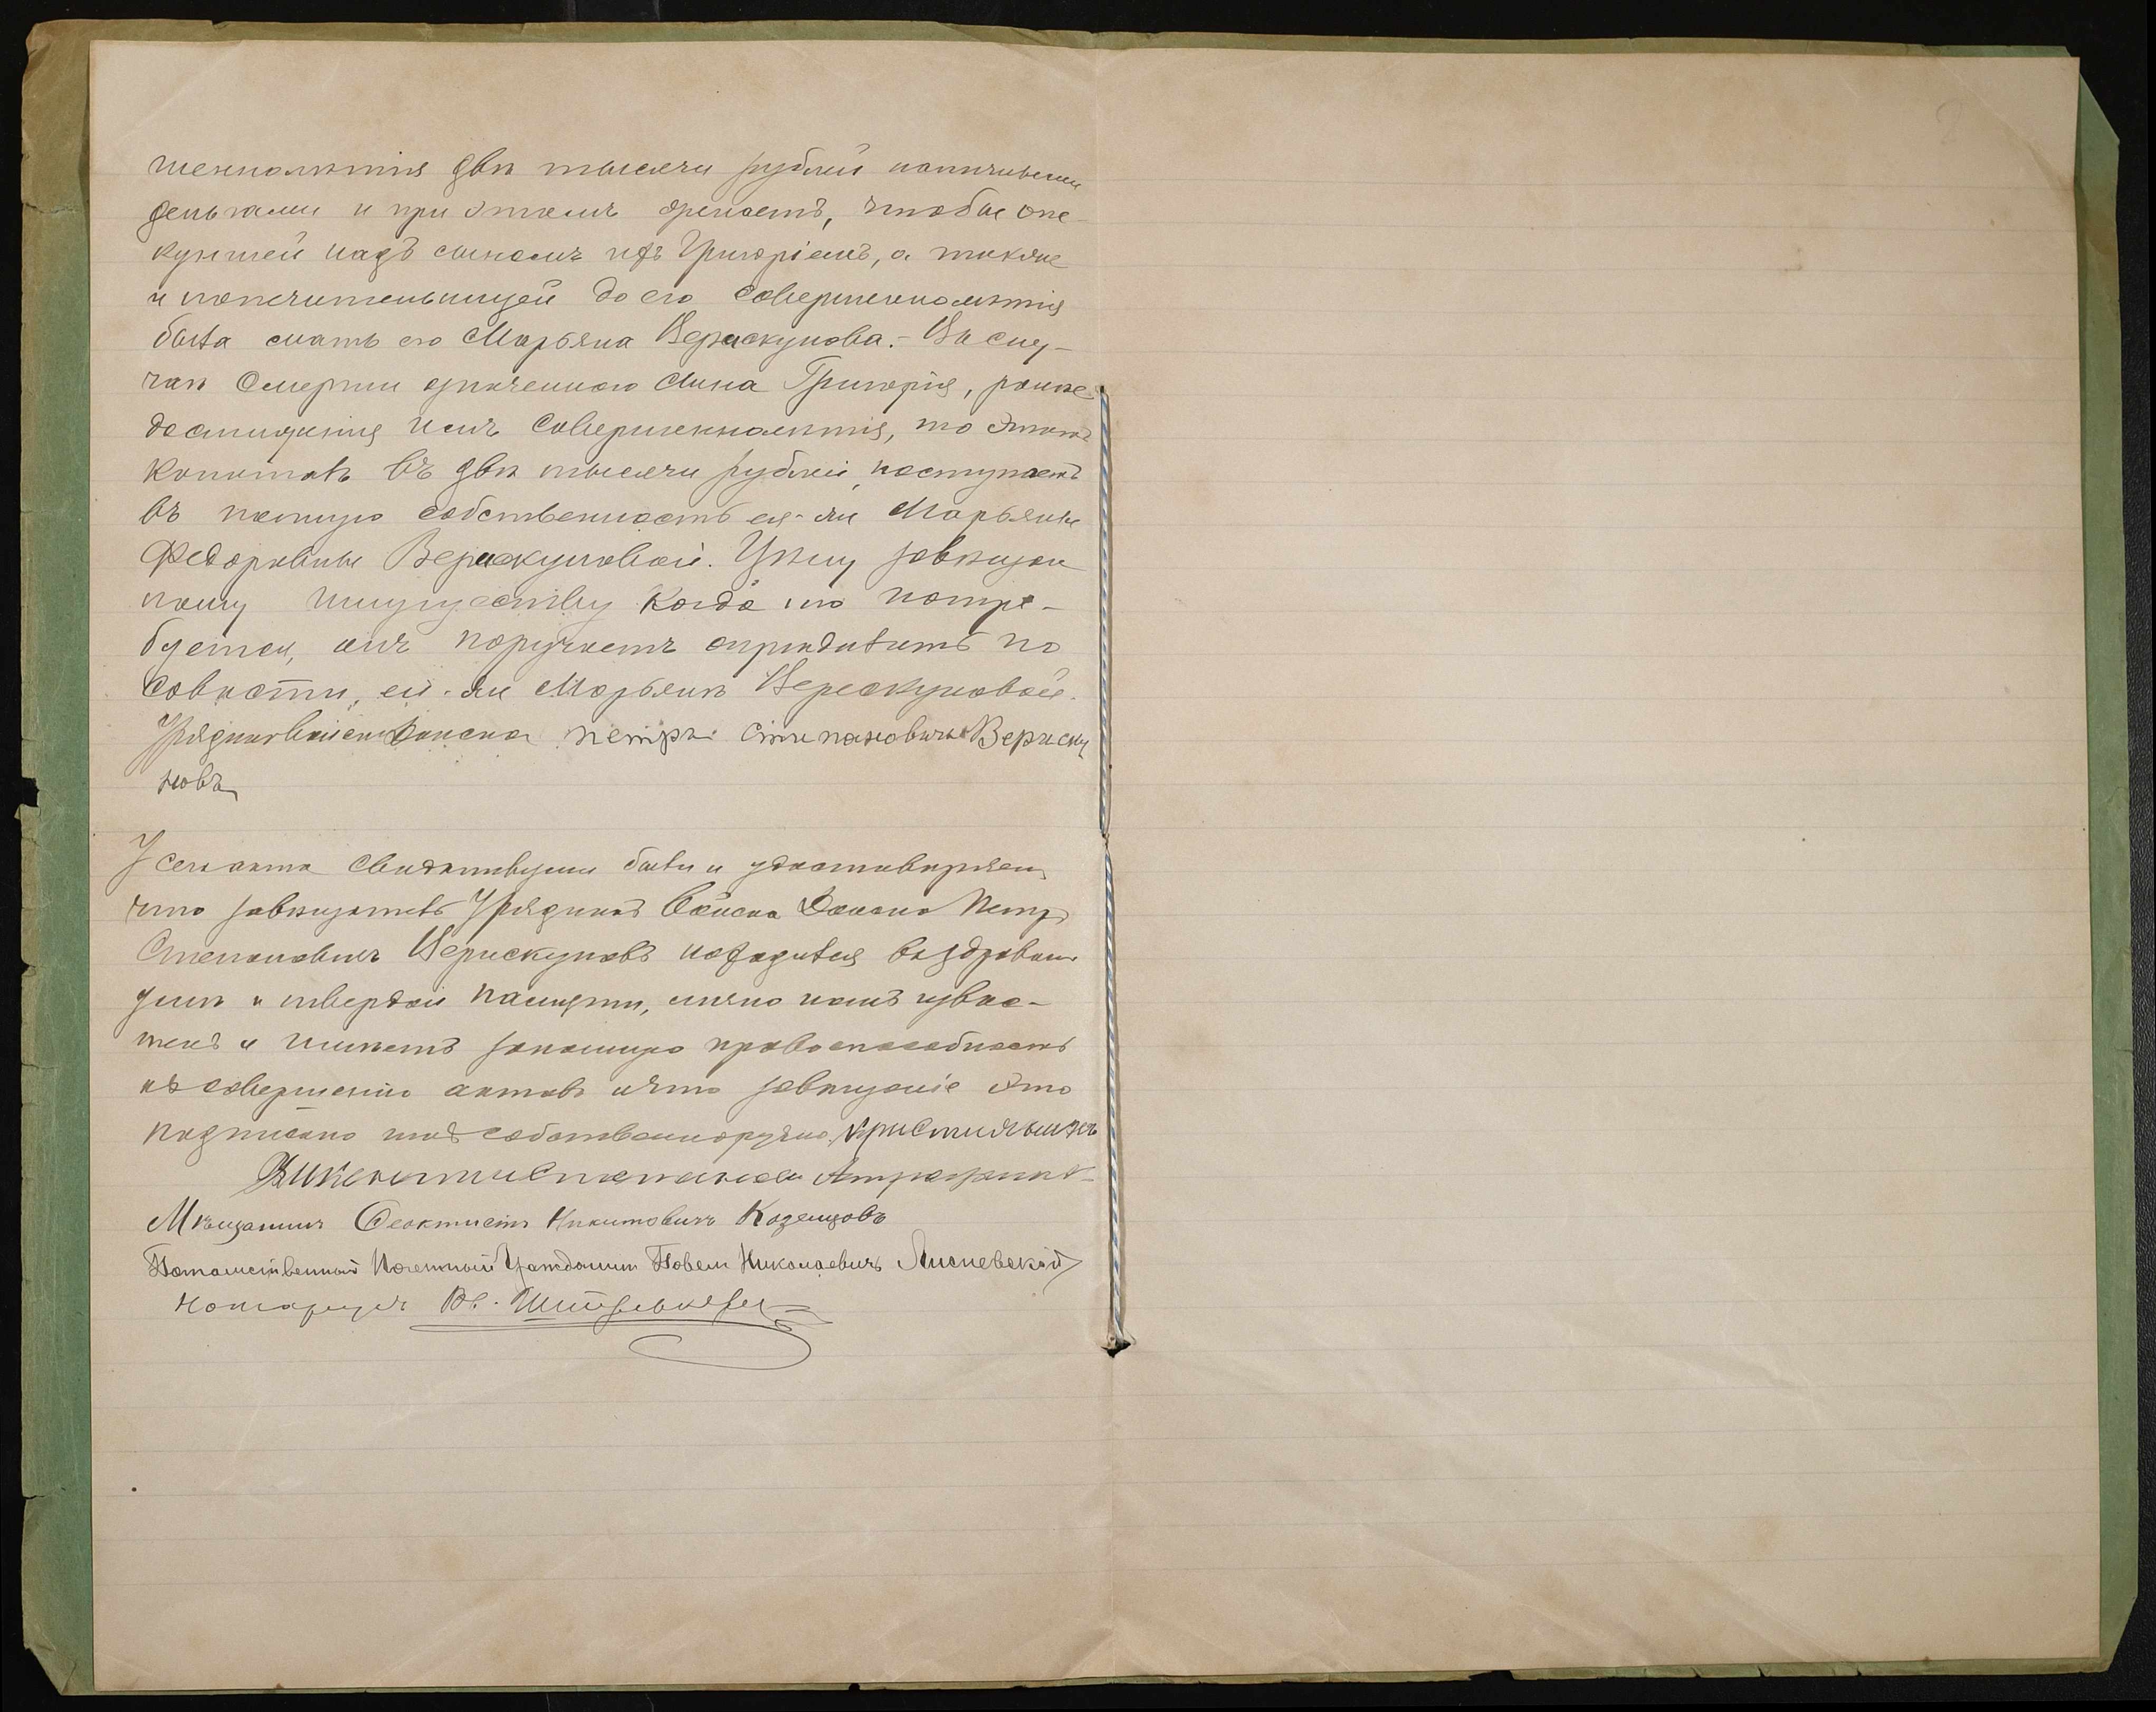 шеннолѣтія двѣ тысячи рублей наличными
деньгами и при этомъ желаетъ, чтобы опе-
куншей надъ сыномъ ихъ Григоріемъ, а также
и попечительницей до его совершеннолѣтія
была мать его Марьяна Верискунова.- Въ слу-
чаѣ смерти означеннаго сына Григорія, ранѣе
достиженія имъ совершеннолѣтія, то этотъ
капиталъ въ двѣ тысячи рублей, поступаетъ
въ полную собственность ея-же Марьяны
Федоровны Верискуновой. Цѣну завѣщан
ному имуществу когда это потре-
буется, онъ поручаетъ опредѣлить по
совѣсти, ей-же Марьянѣ Верискуновой.
Урядникъ войска Донска Петръ Стипановичъ Вериску
новъ
У сего акта свидѣтелями были и удостовѣряемъ,
что завѣщатель Урядникъ Войска Донского Петръ
Степановичъ Верискуновъ находится въ здравомъ
умѣ и твердой памяти, лично намъ извѣс-
тенъ и имѣетъ законную правоспособность
къ совершенію актовъ и что завѣщаніе это
подписано имъ собственноручно. Кристиянинъ
Викенти Степановъ
Мѣщанинъ Феоктистъ Никитовичъ Каземцовъ
Потомственный Почетный Гражданинъ Павелъ Николаевичъ Лисневскій
Нотаріусъ Вл.